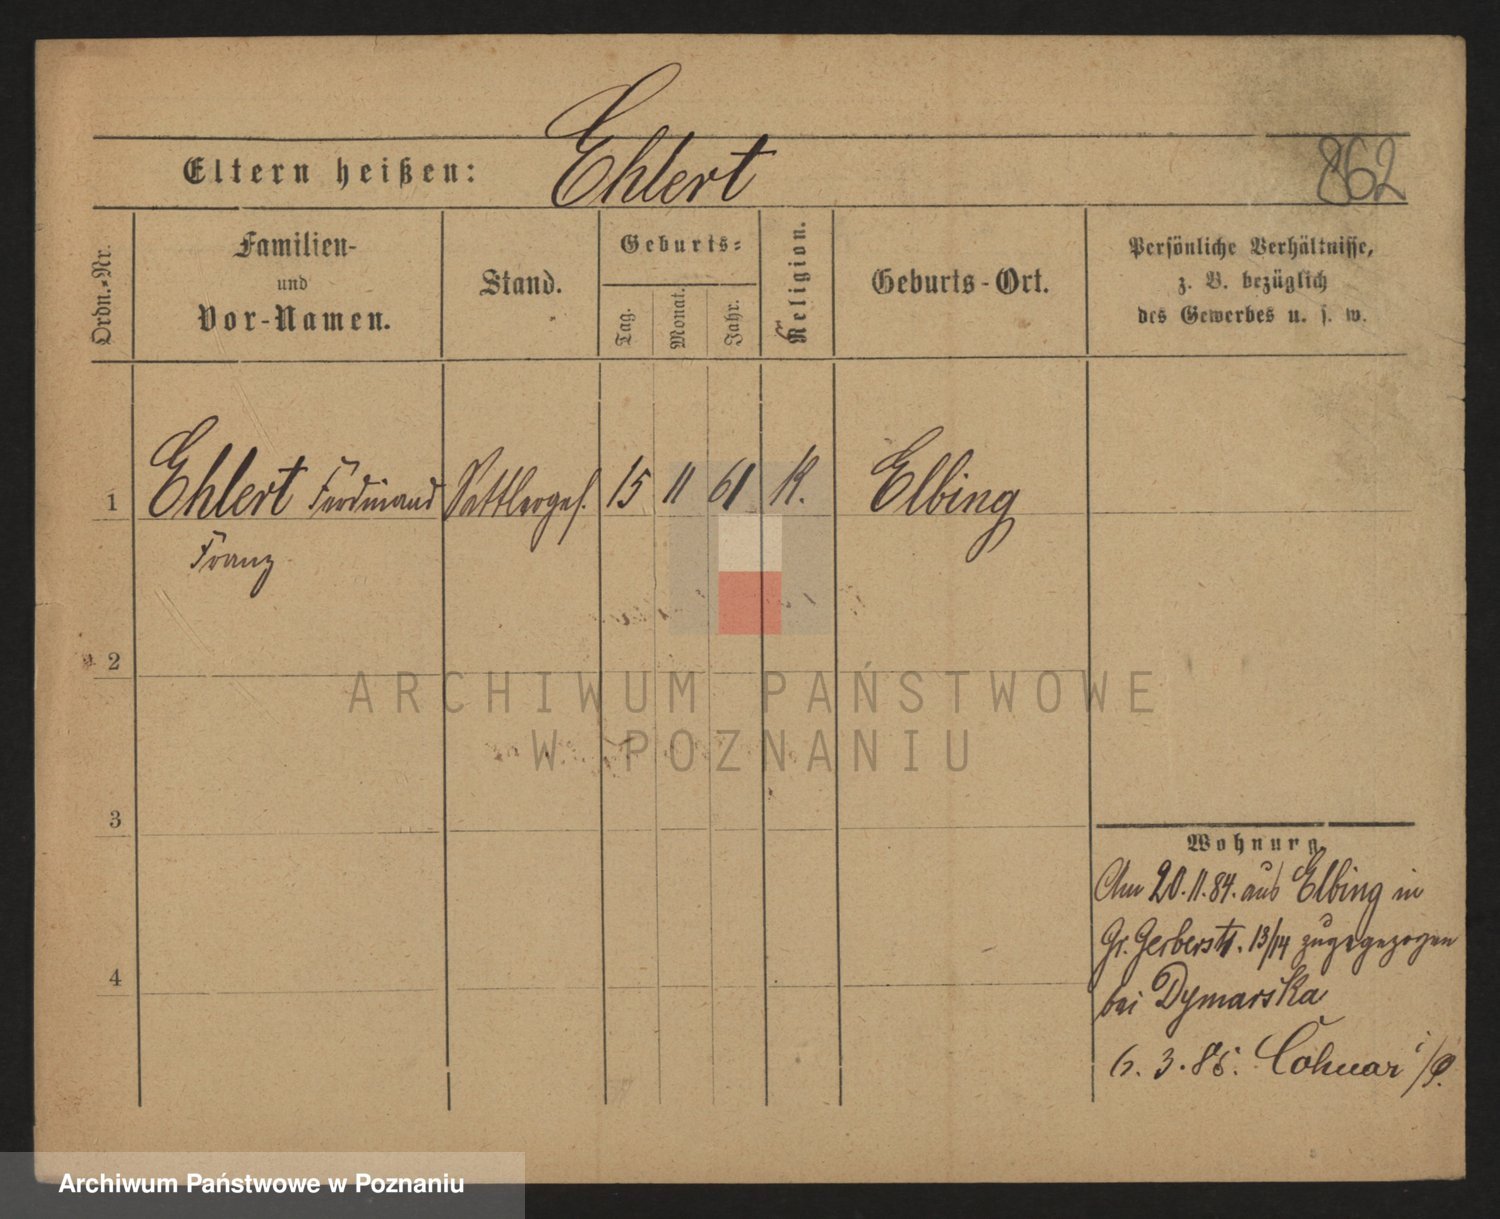 Eltern heißen: Ehlert
862
Ordn.-Nr.
Familien-
und
Vor-Namen.
Stand.
Geburts-
Tag.
Monat.
Jahr.
Religion.
Geburts-Ort.
Persönliche Verhältnisse,
z. B. bezüglich
des Gewerbes u. s. w.
1 Ehlert Ferdinand Sattlerges. 15 11 61 K. Elbing
Franz
2
ARCHIWUM PAŃSTWOWE
W POZNANIU
3
Wohnung
Am 20.11.84. aus Elbing in
Gr. Gerberstr. 13/14 zugezogen
4
bei Dymarska
6. 3. 85.
Archiwum Państwowe w Poznaniu